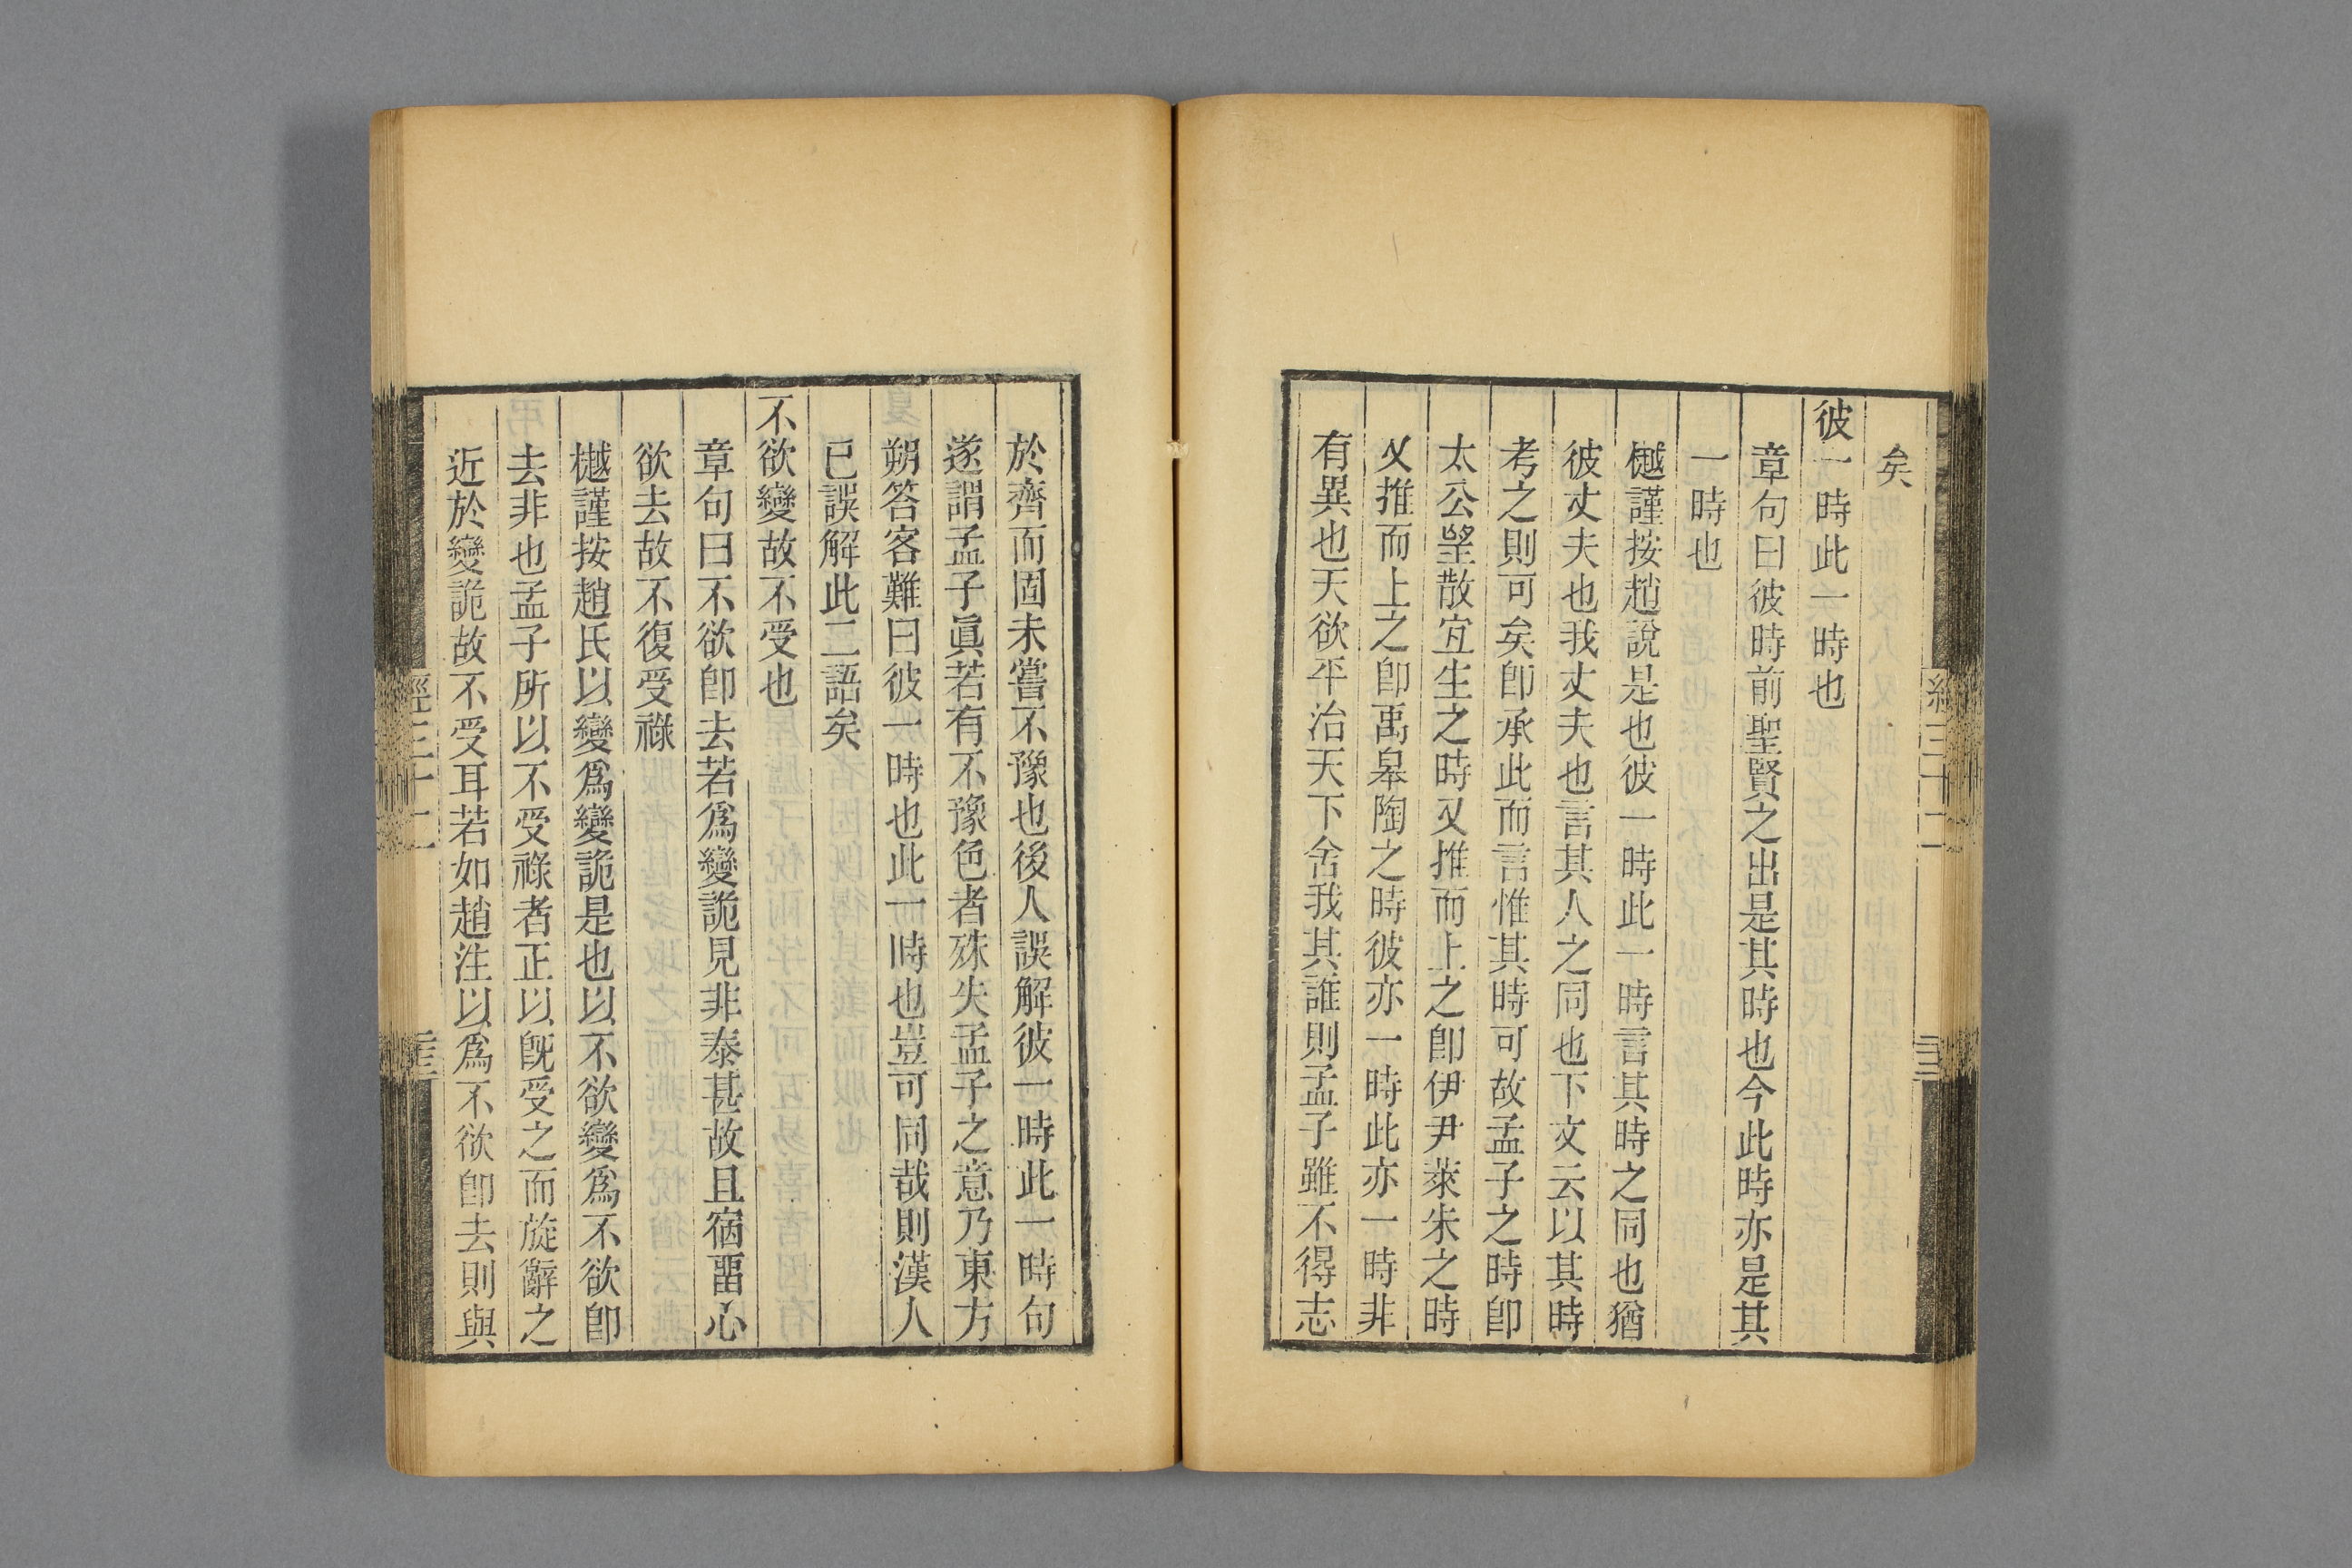 矣
彼一時此一時也
章句曰彼時前聖賢之出是其時也今此時亦是其
一時也
樾謹按趙說是也彼一時此一時言其時之同也猶
彼丈夫也我丈夫也言其人之同也下文云以其時
考之則可矣卽承此而言惟其時可故孟子之時卽
太公望散宜生之時又推而上之卽伊尹萊朱之時
又推而上之卽禹皋陶之時彼亦一時此亦一時非
有異也天欲平治天下舍我其誰則孟子雖不得志
於齊而固未嘗不豫也後人誤解彼一時此一時句
遂謂孟子眞若有不豫色者殊失孟子之意乃東方
朔答客難曰彼一時也此一時也豈可同哉則漢人
已誤解此二語矣
不欲變故不受也
章句曰不欲卽去若爲變詭見非泰甚故且宿畱心
欲去故不復受祿
樾謹按趙氏以變爲變詭是也以不欲變爲不欲卽
去非也孟子所以不受祿者正以旣受之而旋辭之
近於變詭故不受耳若如趙注以爲不欲卽去則與
經三十二